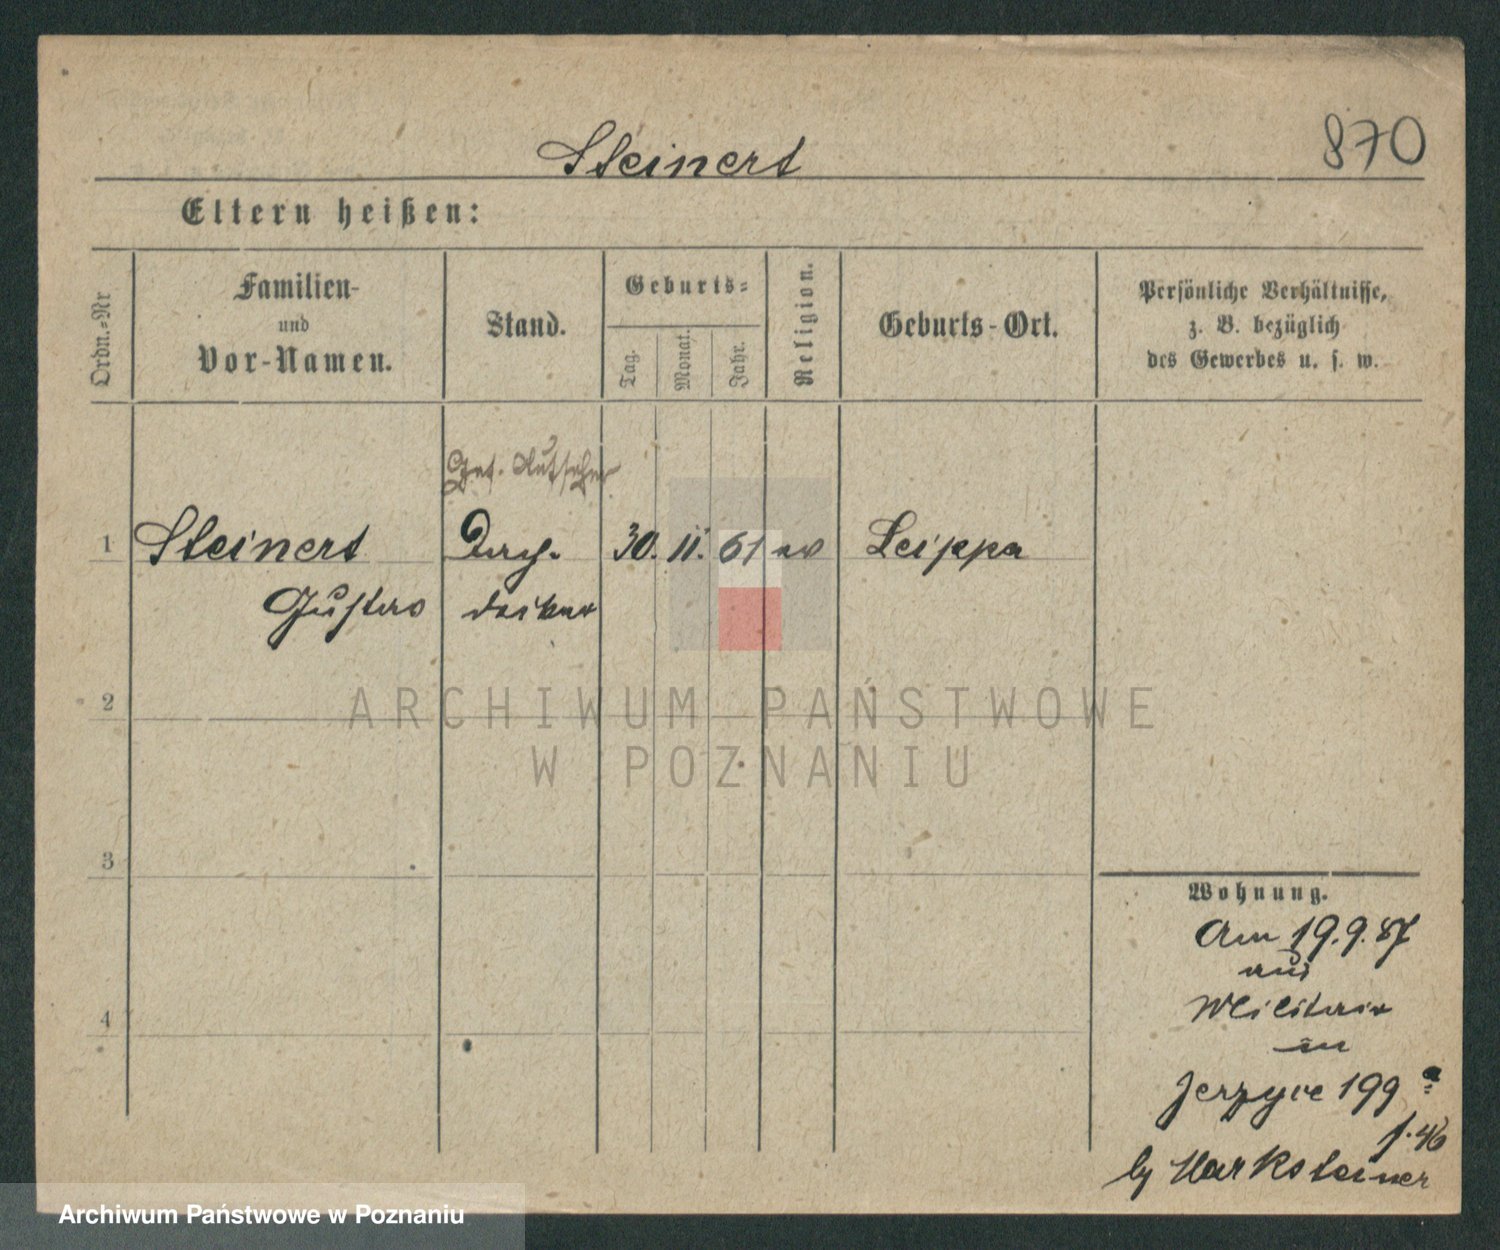 Steinert
870
Eltern heißen:
Ordn.=Nr
Familien-
und
Vor-Namen.
Stand.
Geburts=
Tag.
Monat.
Jahr.
Religion.
Geburts-Ort.
Persönliche Verhältnisse,
z. B. bezüglich
des Gewerbes u. s. w.
Kutscher
1 Steinert 30. 11. 61 ev Leippa
Gustav decker
2
ARCHIWUM PAŃSTWOWE
W POZNANIU
3
Wohnung.
Am 19.9.87
aus
Militair
in
4
Jerzyce 199 a
f. 46
by Marksteiner
Archiwum Państwowe w Poznaniu